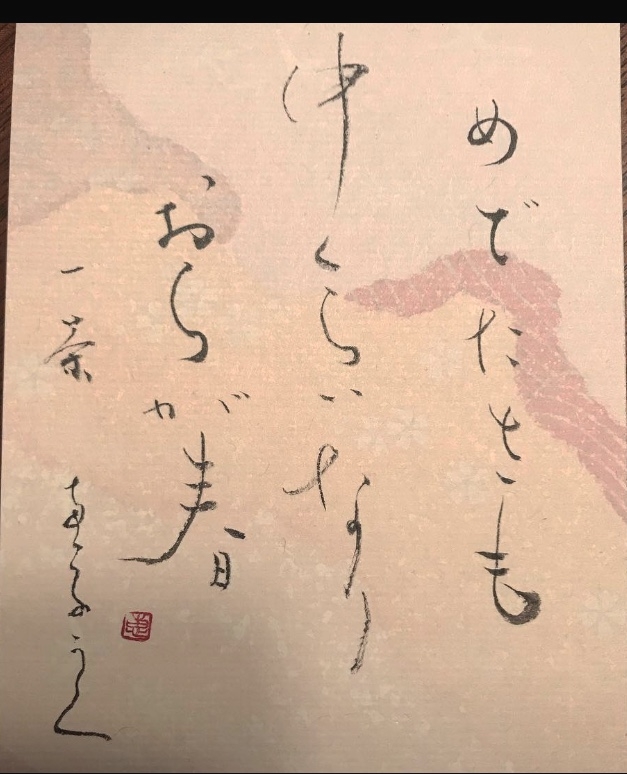 めでたさも
中くらいなり
おらが春
一茶
かく